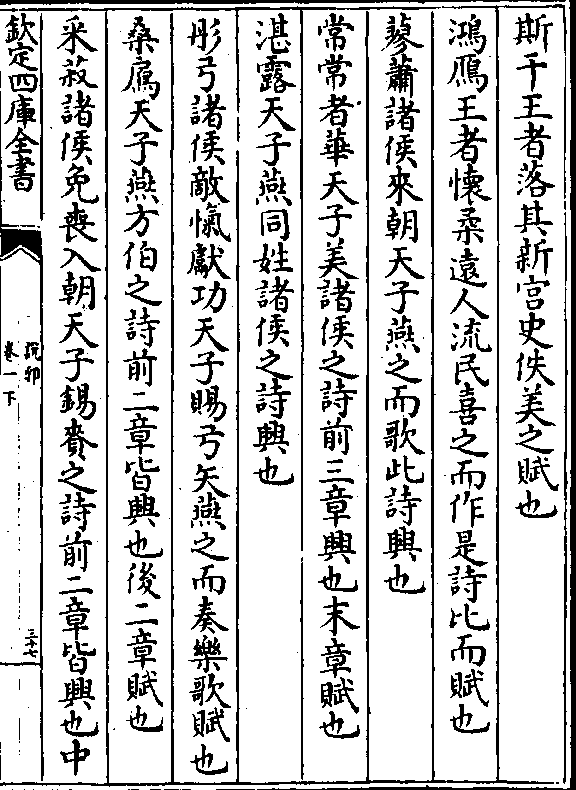 斯干王者落其新宫史佚美之賦也
鴻鴈王者懷柔遠人流民喜之而作是詩比而賦也
蓼蕭諸侯來朝天子燕之而歌此詩興也
常常者華天子美諸侯之詩前三章興也末章賦也
湛露天子燕同姓諸侯之詩興也
彤弓諸侯敵愾獻功天子賜弓矢燕之而奏樂歌賦也
桑扈天子燕方伯之詩前二章皆興也後二章賦也
采菽諸侯免喪入朝天子錫賚之詩前二章皆興也中
欽定四庫全書
卷一下
三十七